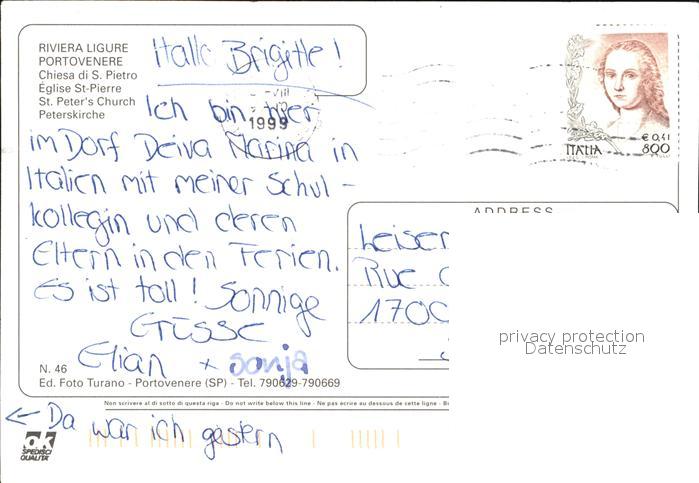 RIVIERA LIGURE
PORTOVENERE
Chiesa di S. Pietro
Église St-Pierre
St. Peter's Church
Peterskirche
Hallo Brigitte!
Ich bin hier
im Dorf Deiva Marina in
Italien mit meiner Schul-
kollegin und deren
Eltern in den Ferien.
Es ist toll! Sonnige
Grüsse
Elian + Sonja
VIII
1999
€ 0,41
ITALIA 800
ADDRESS
Rue
1700
privacy protection
Datenschutz
N. 46
Ed. Foto Turano - Portovenere (SP) - Tel. 790629-790669
Non scrivere al di sotto di questa riga - Do not write below this line - Ne pas ecrire au dessous de cette ligne -
← Da war ich gestern
ok
SPEDISCI
QUALITA'